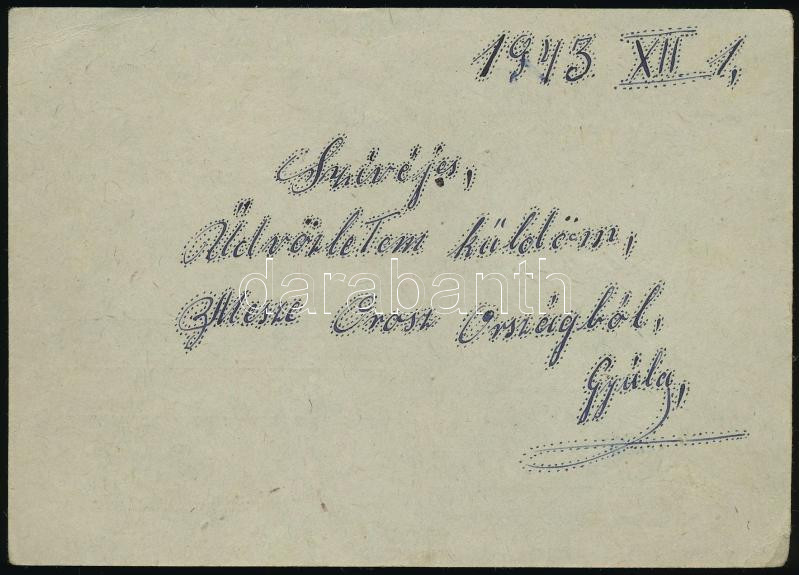 1943 XII 1,
Szivéjes,
Üdvözletem küldöm,
Messze Orosz Országból,
Gyula,
darabanth